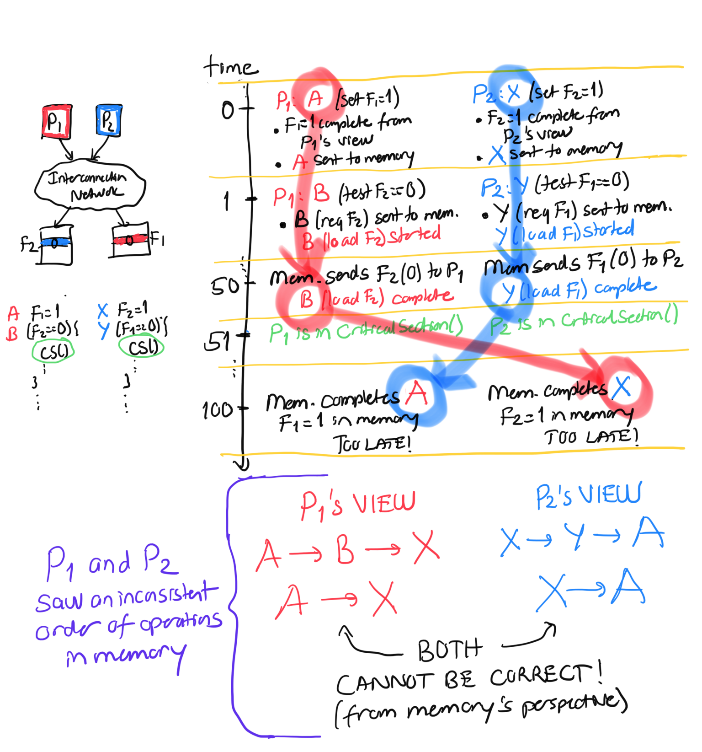 time
P₁
P₂
Interconnection
Network
F₂ 0
0 F₁
A F₁=1
B (F₂==0){
CS()
}
X F₂=1
Y (F₁==0){
CS()
}
0
P₁: A (set F₁=1)
• F₁=1 complete from
P₁'s view
• A sent to memory
P₂: X (set F₂=1)
• F₂=1 complete from
P₂'s view
• X sent to memory
1
P₁: B (test F₂==0)
• B (req F₂) sent to mem.
B (load F₂) started
P₂: Y (test F₁==0)
• Y (req F₁) sent to mem.
Y (load F₁) started
50
Mem. sends F₂(0) to P₁
B (load F₂) complete
Mem sends F₁(0) to P₂
Y (load F₁) complete
51
P₁ is in CriticalSection()
P₂ is in CriticalSection()
100
Mem. completes A
F₁=1 in memory
TOO LATE!
Mem. completes X
F₂=1 in memory
TOO LATE!
P₁ and P₂
saw an inconsistent
order of operations
in memory
P₁'s VIEW
A → B → X
A → X
P₂'s VIEW
X → Y → A
X → A
BOTH
CANNOT BE CORRECT!
(from memory's perspective)